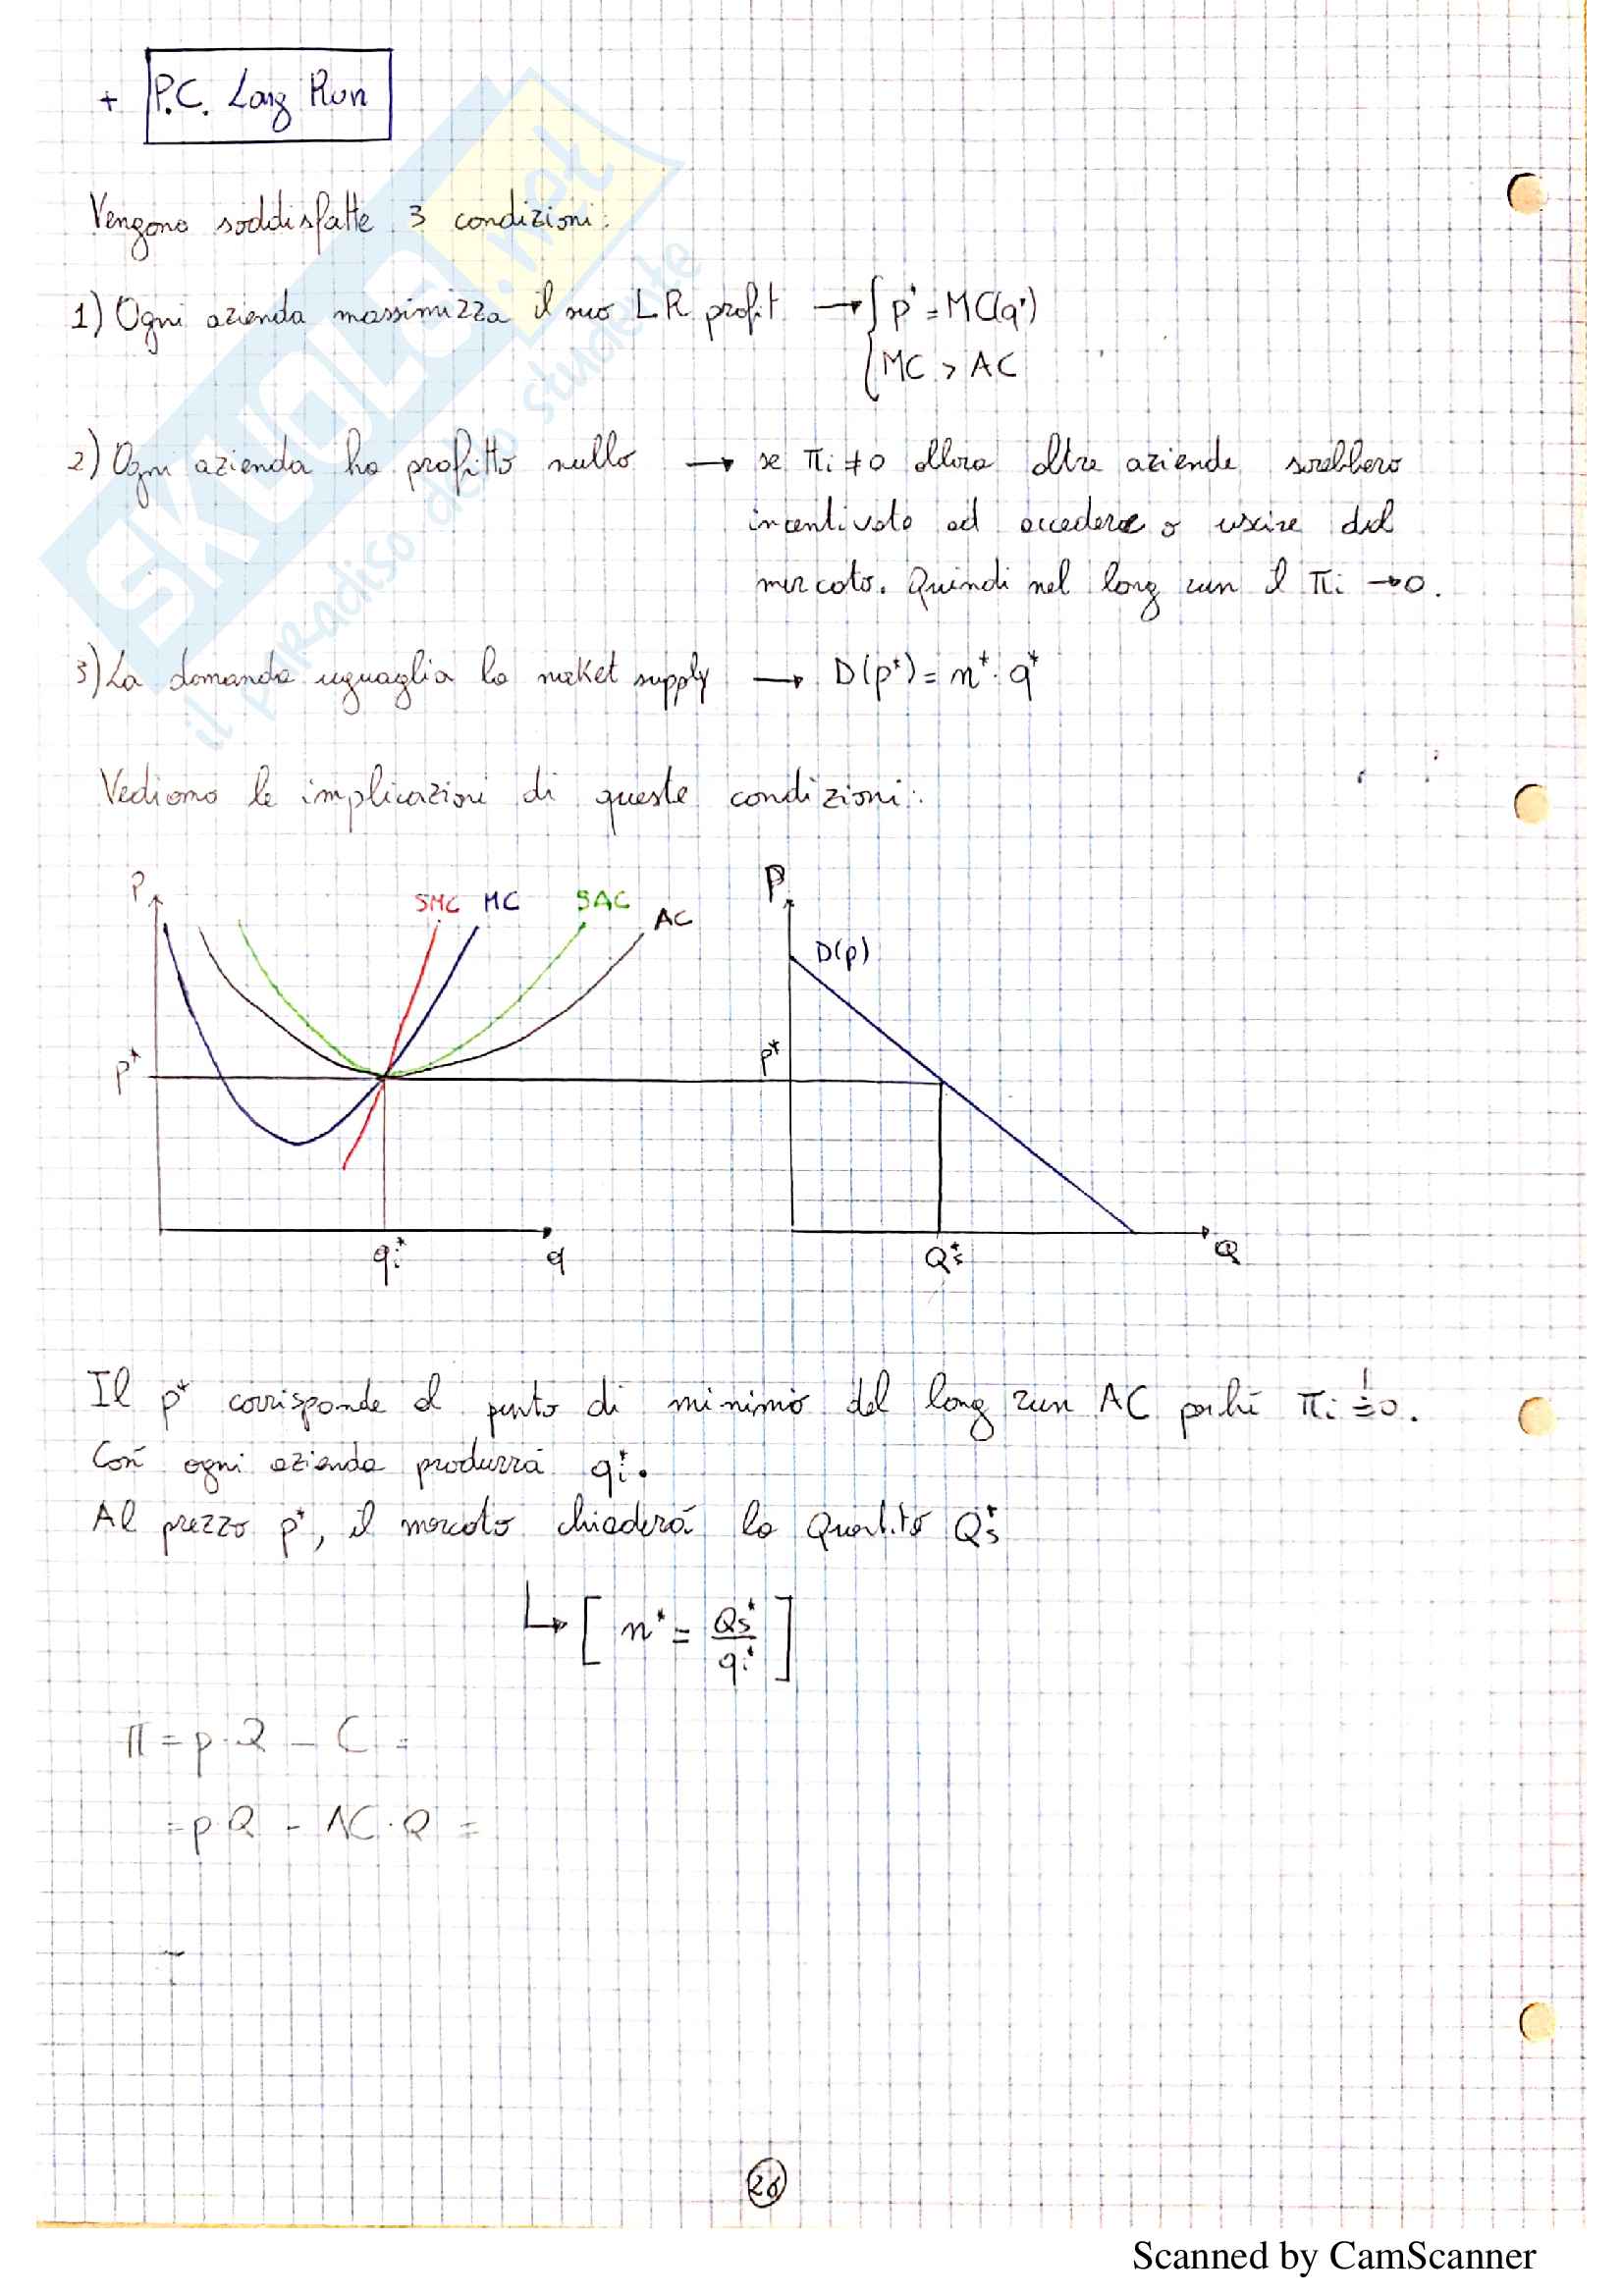 + P.C. Long Run
Vengono soddisfatte 3 condizioni:
1) Ogni azienda massimizza il suo LR profit → { p* = MC(q*)
MC > AC
2) Ogni azienda ha profitto nullo → se πi ≠ 0 allora altre aziende sarebbero
incentivate ad accedere o uscire dal
mercato. Quindi nel long run il πi → 0.
3) La domanda uguaglia la market supply → D(p*) = n* · q*
Vediamo le implicazioni di queste condizioni:
P SMC MC SAC AC
P D(p)
p* p*
qi* q Qs* Q
Il p* corrisponde al punto di minimo del long run AC perché πi != 0.
Così ogni azienda produrrà qi*.
Al prezzo p*, il mercato chiederà la Quantità Qs*
↳ [ n* = Qs* / qi* ]
π = p·Q - C =
= p·Q - AC·Q =
26
SKUOLA.net
il paradiso dello studente
Scanned by CamScanner